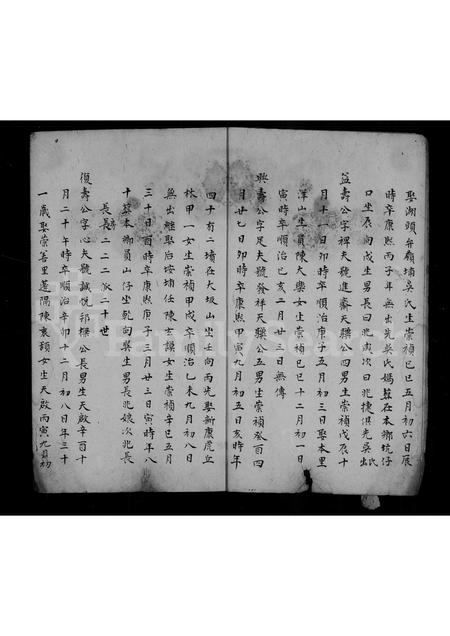 娶湖頭弁顧埔吳氏生崇禎己巳五月初六日辰
時卒康熙丙子年無出先吳氏媽葬在本鄉坑仔
口坐辰向戌生男長曰兆寅次曰兆捷俱先吳氏出
益壽公字裨夫號進齋天驥公四男生崇禎戊辰十
月十一日卯時卒順治庚子五月初三日娶本里
洋山生員陳大樂女生崇禎己巳十二月初一日
寅時卒順治己亥二月廿三日無傳
興壽公字足夫號發祥天驥公五男生崇禎癸酉四
月廿九日卯時卒康熙甲寅九月初五日亥時年
四十有二墳在大圾山坐壬向丙先娶新康虎丘
林甲一女生崇禎甲戌卒順治乙未九月初八日
無出繼娶后垵埔任陳玄謨女生崇禎辛巳五月
三十日酉時卒康熙庚子三月廿三日寅時年八
十葬本鄉員山仔坐乾向巽生男長兆娘次兆長
長房二二二派二十世
復壽公字心夫號誠悅邦樑公長男生天啟辛酉十
月二十午時卒順治辛卯十二月初八日年三十
一歲娶崇善里蓬隔陳袞穎女生天啟丙寅九月初